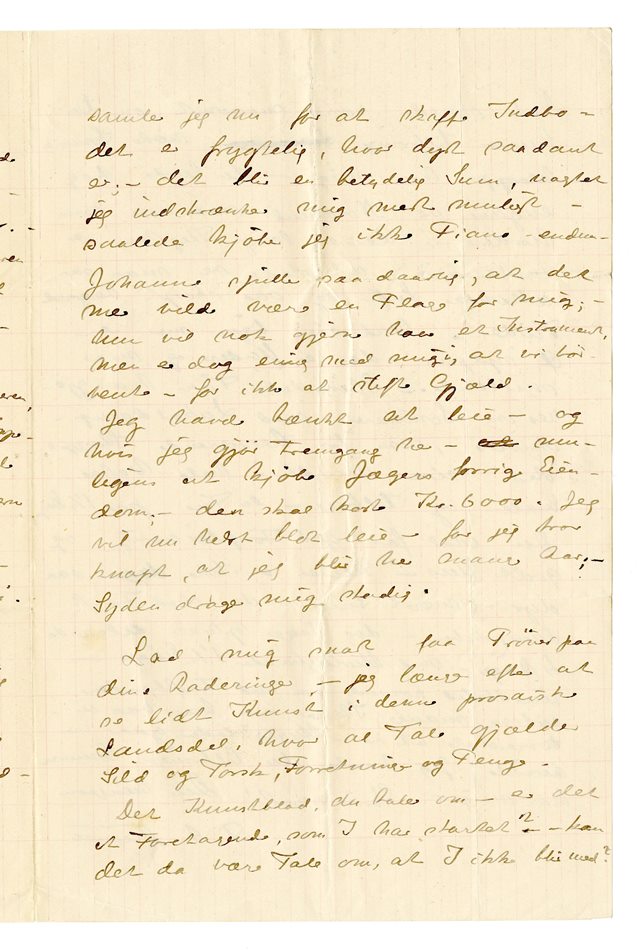 samle jeg nu for at skaffe Indbo –
det er frygtelig, hvor dyrt saadant
er; – det blir en betydelig Sum, uagtet
jeg indskrænker mig mest muligt –
saaledes kjøber jeg ikke Piano – endnu –
Johanne spiller saa daarlig, at det
me vilde være en Plage for mig; –
hun vil nok gjerne have et Instrument,
men er dog enig med mig i, at vi bør
vente – for ikke at stifte Gjæld.
Jeg havde tænkt at leie – og
hvis jeg gjør Fremgang her – mu-
ligens at kjøbe Jægers forrige Eien-
dom; – den skal koste Kr. 6000. Jeg
vil nu helst blot leie – for jeg tror
knapt, at jeg blir her mange Aar; –
Syden drager mig stadig.
Lad mig snart faa Prøver paa
dine Raderinger, – jeg længes efter at
se lidt Kunst i denne prosaiske
Landsdel, hvor al Tale gjælder
Sild og Torsk, Forretninger og Penge.
Det Kunstblad, du taler om – er det
et Foretagende, som I har startet? – kan
det da være Tale om, at I ikke blir med?